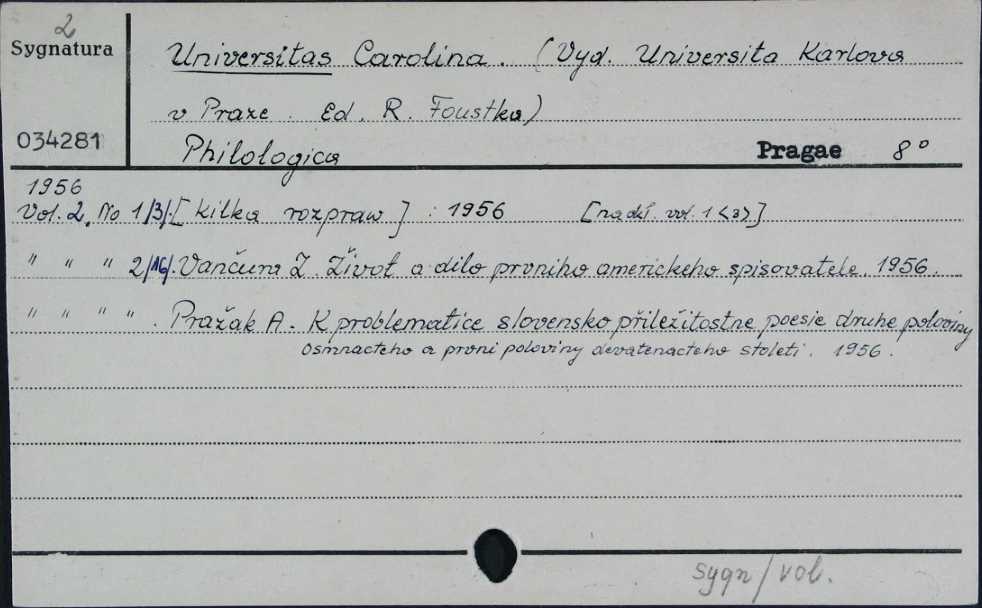 2
Sygnatura
034281
Universitas Carolina. (Vyd. Universita Karlova
v Praze. Ed. R. Foustka)
Philologica Pragae 8°
1956
Vol. 2, No 1/3/. [kilka rozpraw] : 1956 [nadt. vol. 1 <3>]
" " " 2/16/. Vančura Z. Život a dílo prvniho americkeho spisovatele. 1956.
" " " " . Pražak A. K problematice slovensko příležitostne poesie druhe poloviny
osmnacteho a prvni poloviny devatenacteho stoleti. 1956.
sygn/vol.